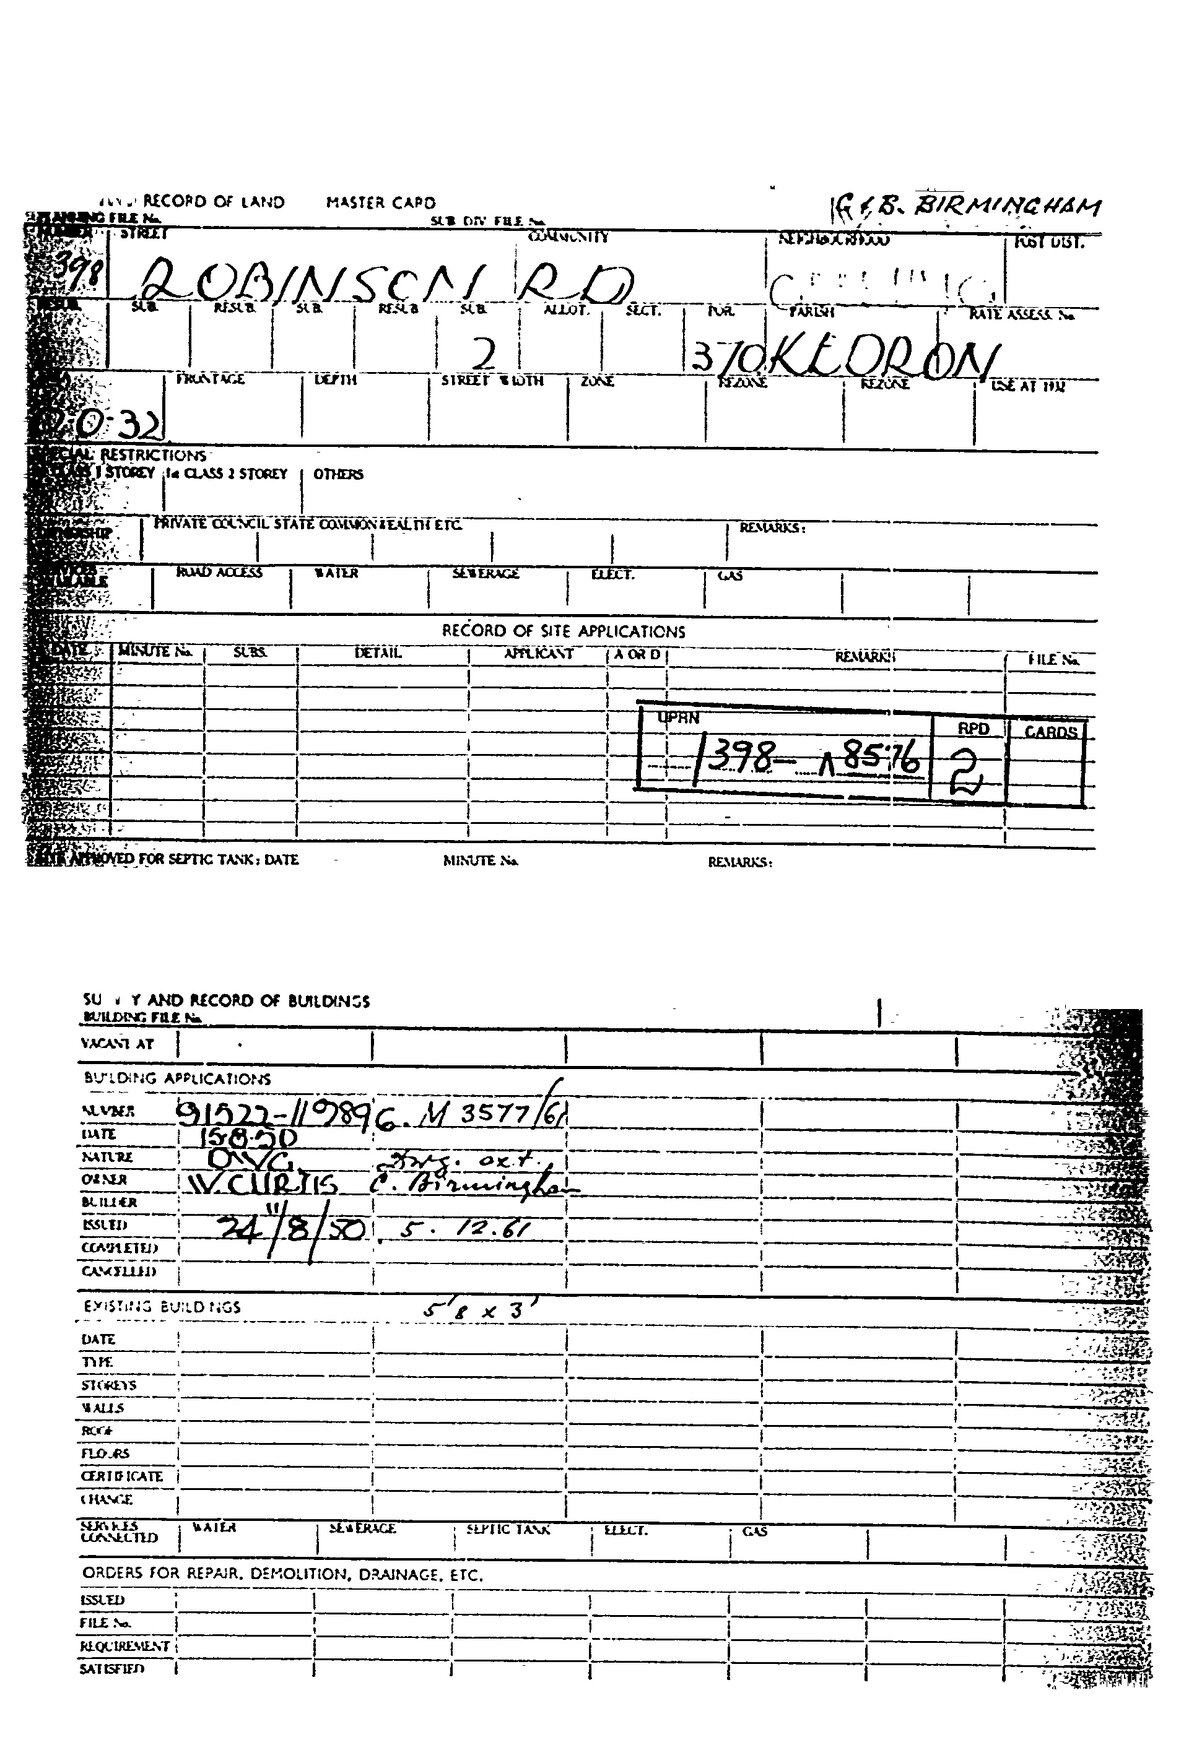 RECORD OF LAND MASTER CARD G & B. BIRMINGHAM
PLANNING FILE No. SUB DIV FILE No.
NUMBER STREET COMMUNITY NEIGHBOURHOOD POST DIST.
398 ROBINSON RD GEEBUNG
RESUB. SUB. RESUB. SUB. RESUB SUB. ALLOT. SECT. POR. PARISH RATE ASSESS. No.
2 370 KEDRON
FRONTAGE DEPTH STREET WIDTH ZONE REZONE REZONE USE AT
0-0-32
SPECIAL RESTRICTIONS
CLASS 1 STOREY 1st CLASS 2 STOREY OTHERS
OWNERSHIP PRIVATE COUNCIL STATE COMMONWEALTH ETC. REMARKS:
SERVICES AVAILABLE ROAD ACCESS WATER SEWERAGE ELECT. GAS
RECORD OF SITE APPLICATIONS
DATE MINUTE No. SUBS. DETAIL APPLICANT A OR D REMARKS FILE No.
UPRN RPD CARDS
1398- 8576 2
SITE APPROVED FOR SEPTIC TANK: DATE MINUTE No. REMARKS:
AND RECORD OF BUILDINGS
BUILDING FILE No.
VACANT AT
BUILDING APPLICATIONS
NUMBER 91522-119896. M 3577/61
DATE 15.8.50
NATURE DWG. Dwg. ext.
OWNER W. CURTIS C. Birmingham
BUILDER "
ISSUED 24/8/50 5. 12.61
COMPLETED
CANCELLED
EXISTING BUILDINGS 5'8 x 3'
DATE
TYPE
STOREYS
WALLS
ROOF
FLOORS
CERTIFICATE
CHANGE
SERVICES CONNECTED WATER SEWERAGE SEPTIC TANK ELECT. GAS
ORDERS FOR REPAIR, DEMOLITION, DRAINAGE, ETC.
ISSUED
FILE No.
REQUIREMENT
SATISFIED